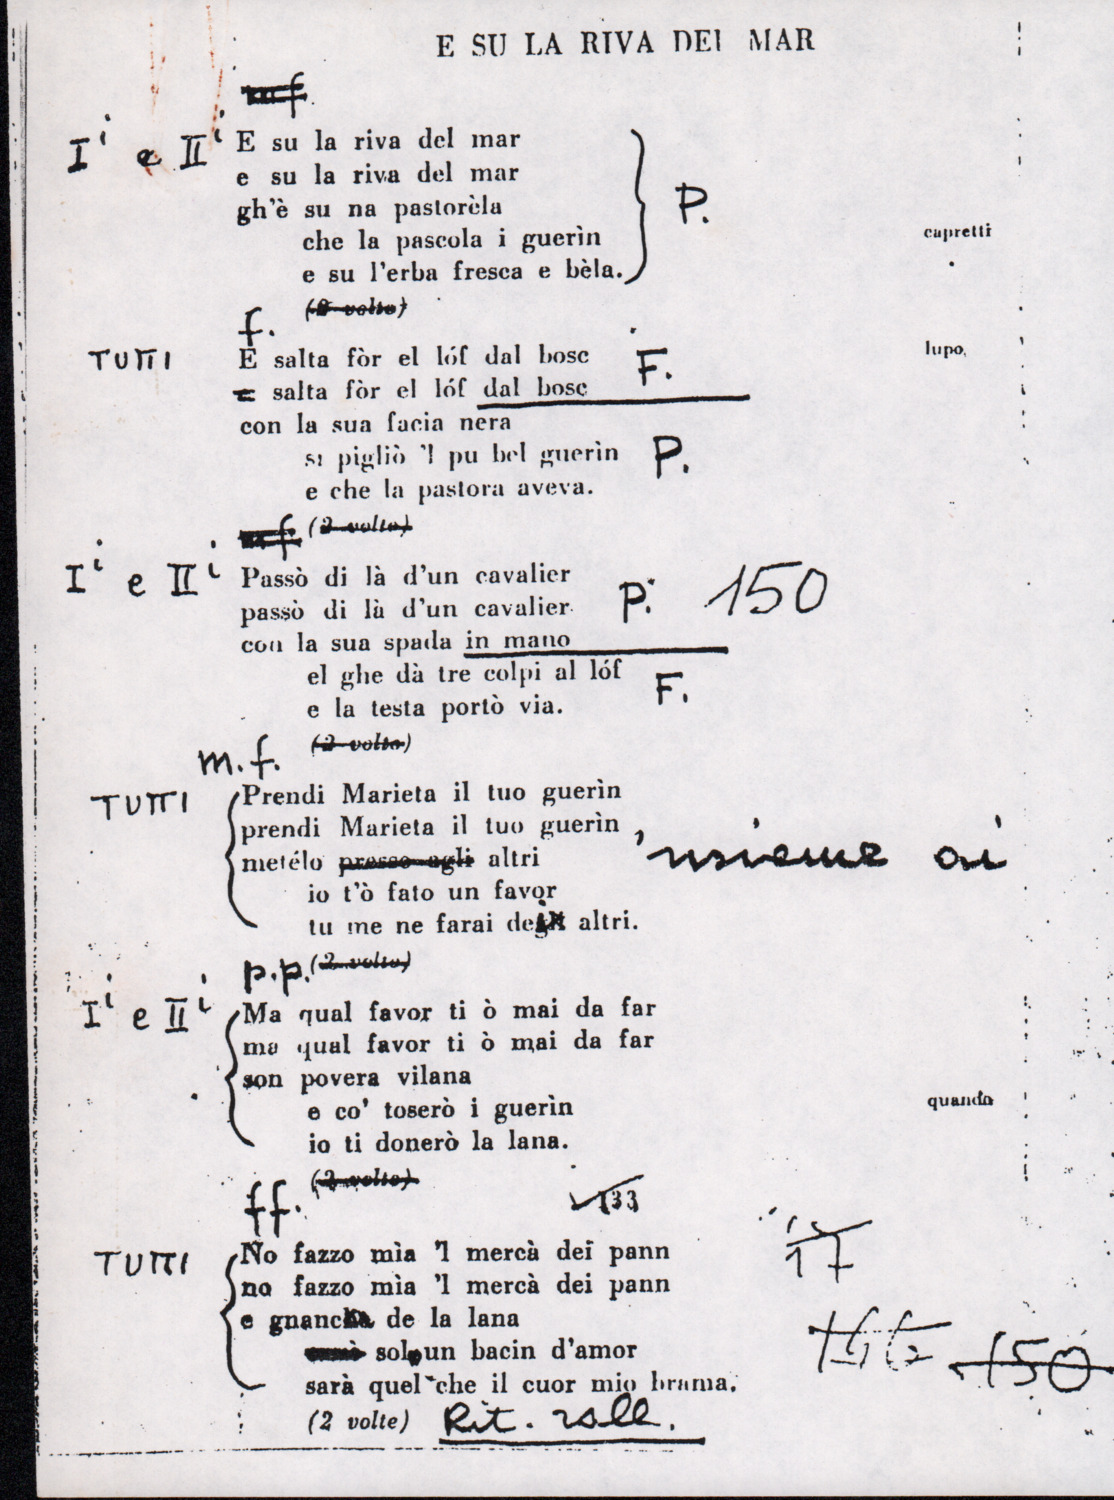 E SU LA RIVA DEL MAR
m.f.
Iⁱ e IIⁱ E su la riva del mar
e su la riva del mar
gh'è su na pastorèla P.
che la pascola i guerìn capretti
e su l'erba fresca e bèla.
(2 volte)
f.
TUTTI E salta fòr el lóf dal bosc F. lupo,
E salta fòr el lóf dal bosc
con la sua facia nera
si pigliò 'l pu bel guerìn P.
e che la pastora aveva.
m.f. (2 volte)
Iⁱ e IIⁱ Passò di là d'un cavalier
passò di là d'un cavalier P. 150
con la sua spada in mano
el ghe dà tre colpi al lóf
e la testa portò via. F.
(2 volte)
m.f.
TUTTI Prendi Marieta il tuo guerìn
prendi Marieta il tuo guerìn,
metélo presso agli altri insieme ai
io t'ò fato un favor
tu me ne farai dei altri.
p.p. (2 volte)
Iⁱ e IIⁱ Ma qual favor ti ò mai da far
ma qual favor ti ò mai da far
son povera vilana
e co' toserò i guerìn quando
io ti donerò la lana.
(2 volte)
ff. 133
TUTTI No fazzo mìa 'l mercà dei pann 17
no fazzo mìa 'l mercà dei pann
e gnanca de la lana
sol un bacin d'amor 150
sarà quel che il cuor mio brama.
(2 volte) Rit. rall.